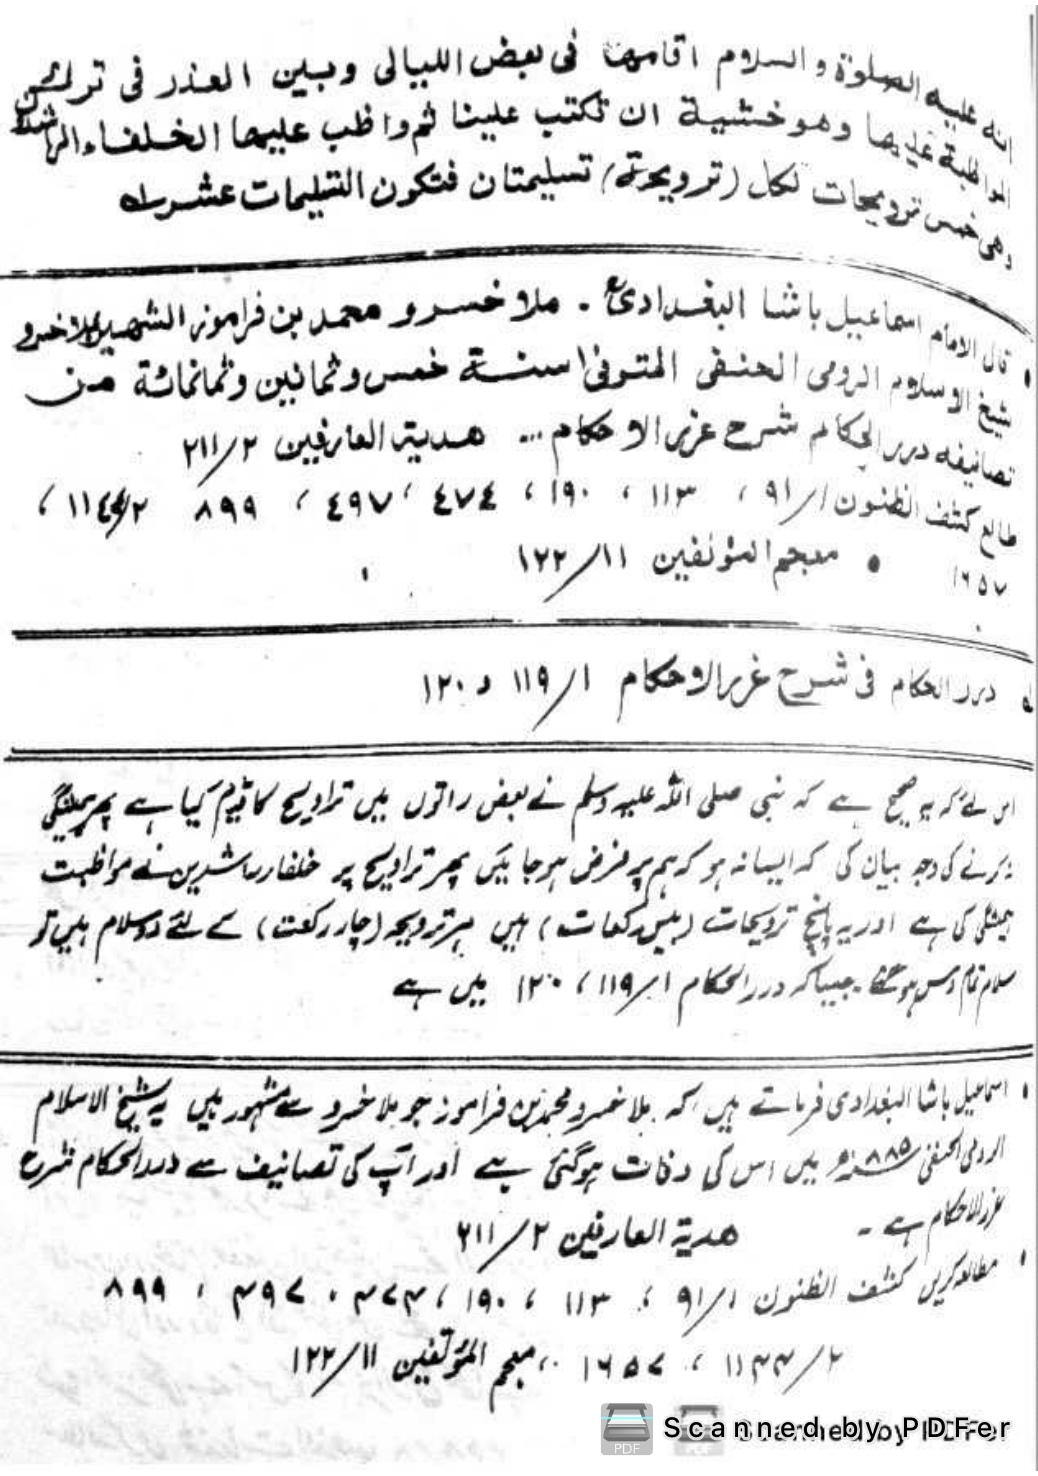 انه عليه الصلوة و السلام اقامها فى بعض الليالى وبين العذر فى ترك
المواظبة عليها وهو خشية ان تكتب علينا ثم واظب عليها الخلفاء الراشد
وهى خمس ترويحات لكل (ترويحة) تسليمتان فتكون التسليمات عشرا
قال الامام اسماعيل باشا البغدادى . ملا خسرو محمد بن فراموز الشهير بملا خسرو
شيخ الاسلام الرومى الحنفى المتوفى سنة خمس وثمانين وثمانمائة من
تصانيفه درر الحكام شرح غرر الاحكام ... هدية العارفين ٢/٢١١
طالع كشف الظنون ١/٩١ ، ١١٣ ، ١٩٠ ، ٤٧٤ ، ٤٩٧ ، ٨٩٩ ٢/١١٤٤ ،
١٦٥٧ • معجم المؤلفين ١١/١٢٢
درر الحكام فى شرح غرر الاحكام ١/١١٩ و ١٢٠
اس لئے کہ یہ صحیح ہے کہ نبی صلی اللہ علیہ وسلم نے بعض راتوں میں تراویح کا قیام کیا ہے پھر ہمیشگی
نہ کرنے کی وجہ بیان کی کہ ایسا نہ ہو کہ ہم پر فرض ہو جائیں پھر تراویح پر خلفاء راشدین نے مواظبت
ہمیشگی کی ہے اور یہ پانچ ترویحات (بیس رکعات) ہیں ہر ترویحہ (چار رکعت) کے لئے دو سلام ہیں تو
سلام تمام دس ہو گئے ۔ جیسا کہ درر الحکام ۱/۱۱۹ ، ۱۲۰ میں ہے
اسماعیل باشا البغدادی فرماتے ہیں کہ ملا خسرو محمد بن فراموز جو ملا خسرو سے مشہور ہیں یہ شیخ الاسلام
الرومی الحنفی ۸۸۵ھ میں اس کی وفات ہوگئی ہے اور آپ کی تصانیف سے درر الحکام شرح
غرر الاحکام ہے ۔ ھدیۃ العارفین ۲/۲۱۱
مطالعہ کریں کشف الظنون ۱/۹۱ ، ۱۱۳ ، ۱۹۰ ، ۴۷۴ ، ۴۹۷ ، ۸۹۹
۲/۱۱۴۴ ، ۱۶۵۷ ، معجم المؤلفین ۱۱/۱۲۲
Scanned by PDFer